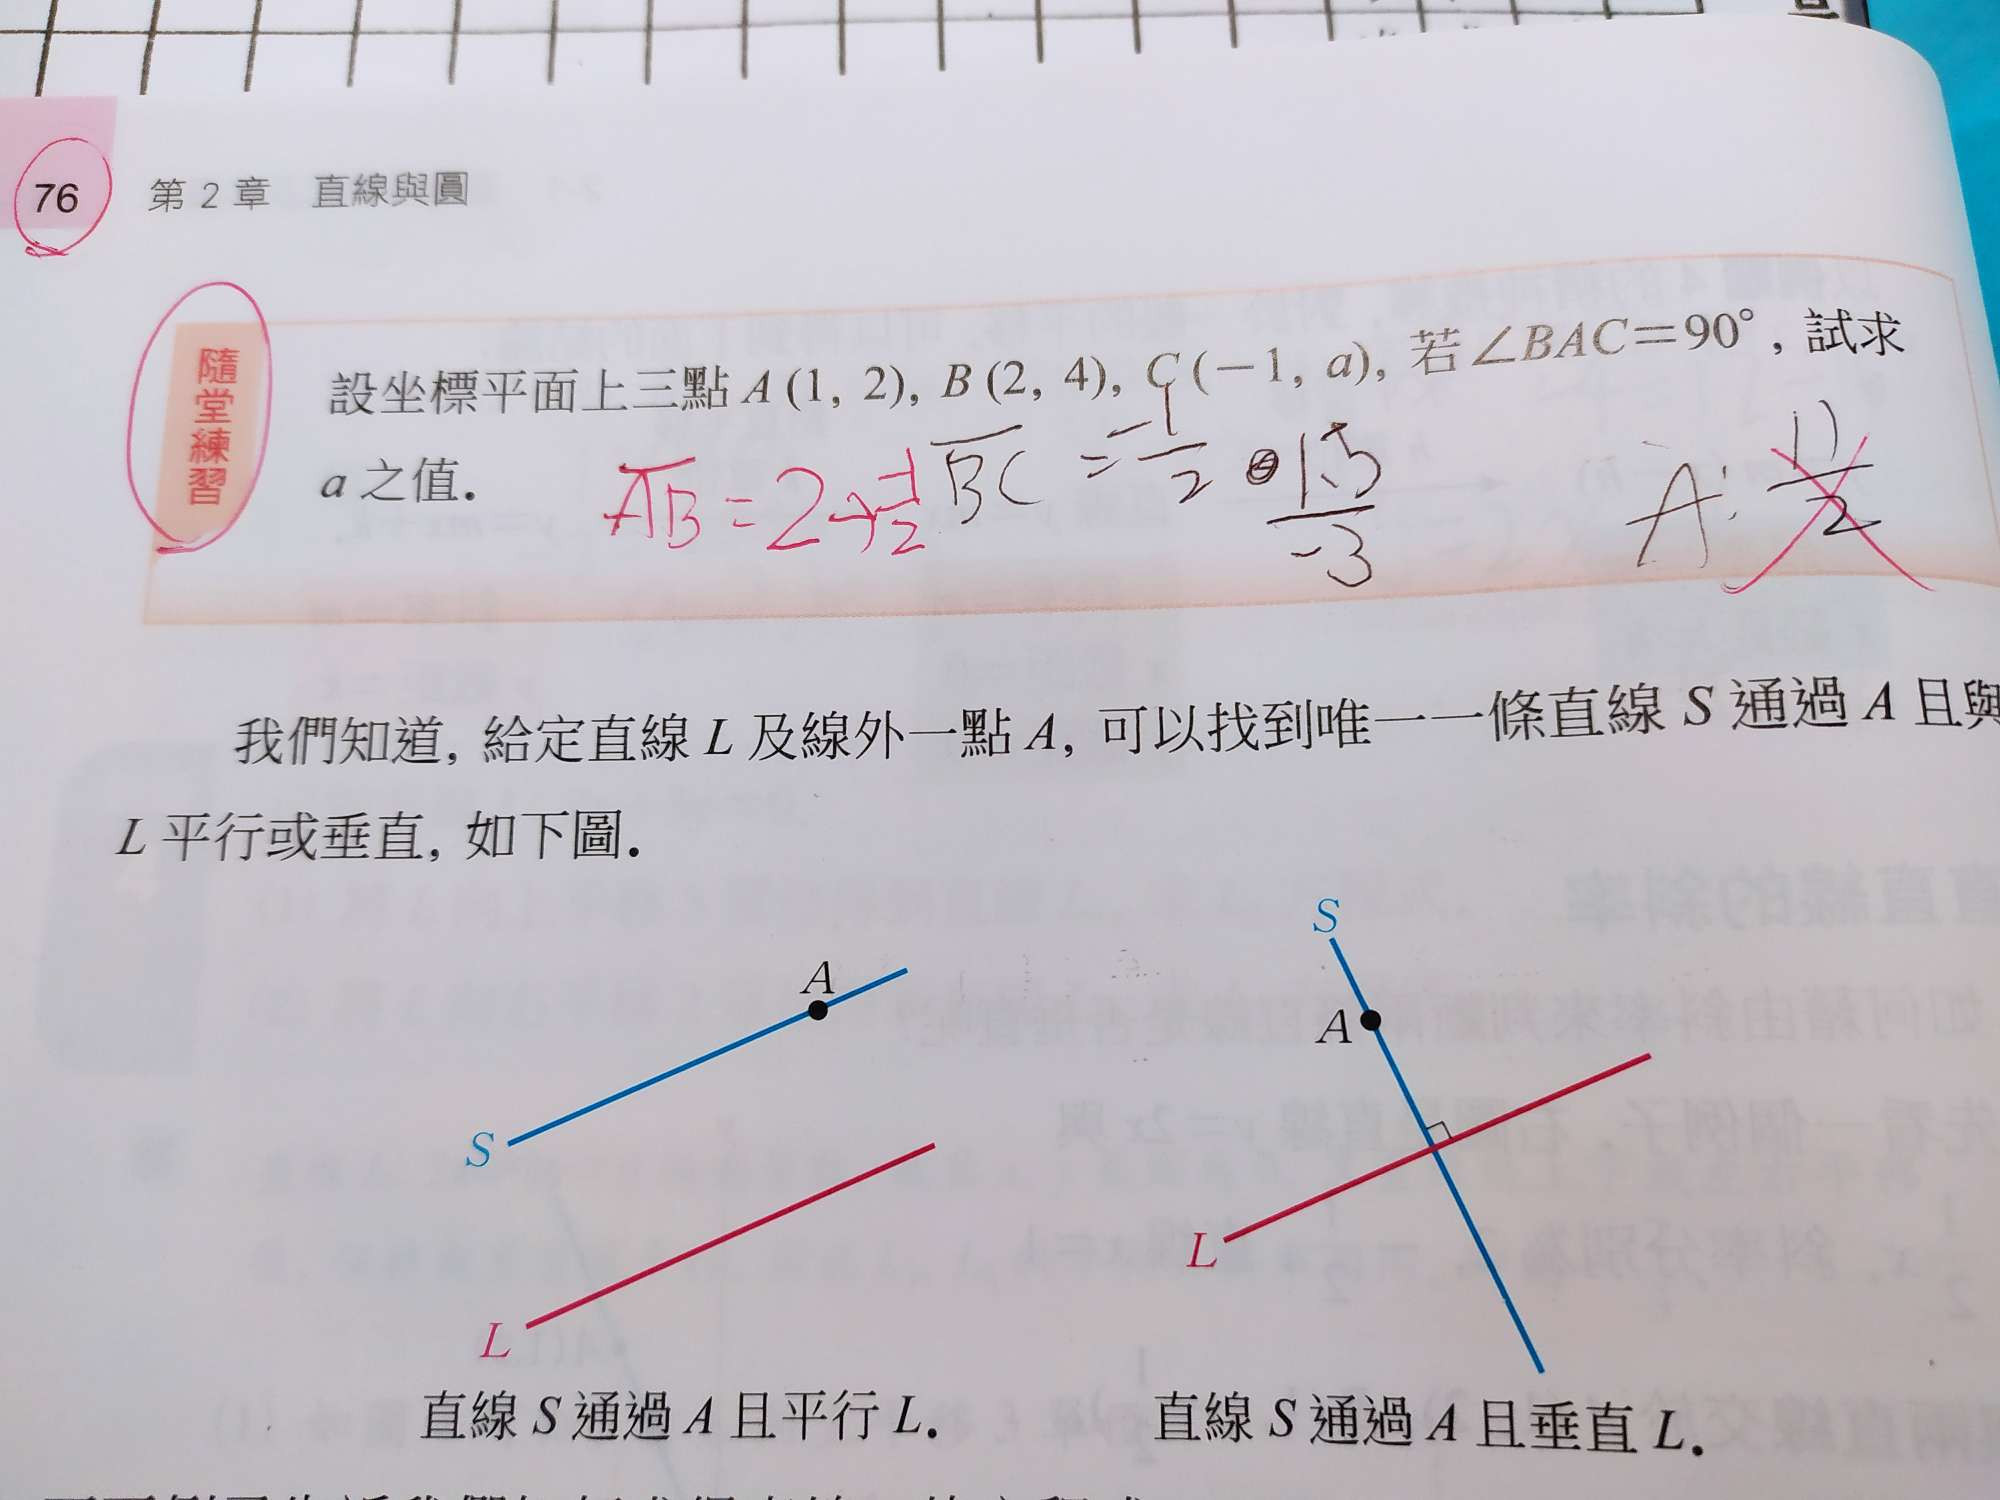 76 第 2 章 直線與圓
隨堂練習
設坐標平面上三點 A (1, 2), B (2, 4), C (−1, a), 若 ∠BAC=90°, 試求
a 之值.
AB = 2 → -1/2 BC = -1/2
-3
A: 11/2
我們知道, 給定直線 L 及線外一點 A, 可以找到唯一一條直線 S 通過 A 且與
L 平行或垂直, 如下圖.
A
S
L
S
A
L
直線 S 通過 A 且平行 L.
直線 S 通過 A 且垂直 L.